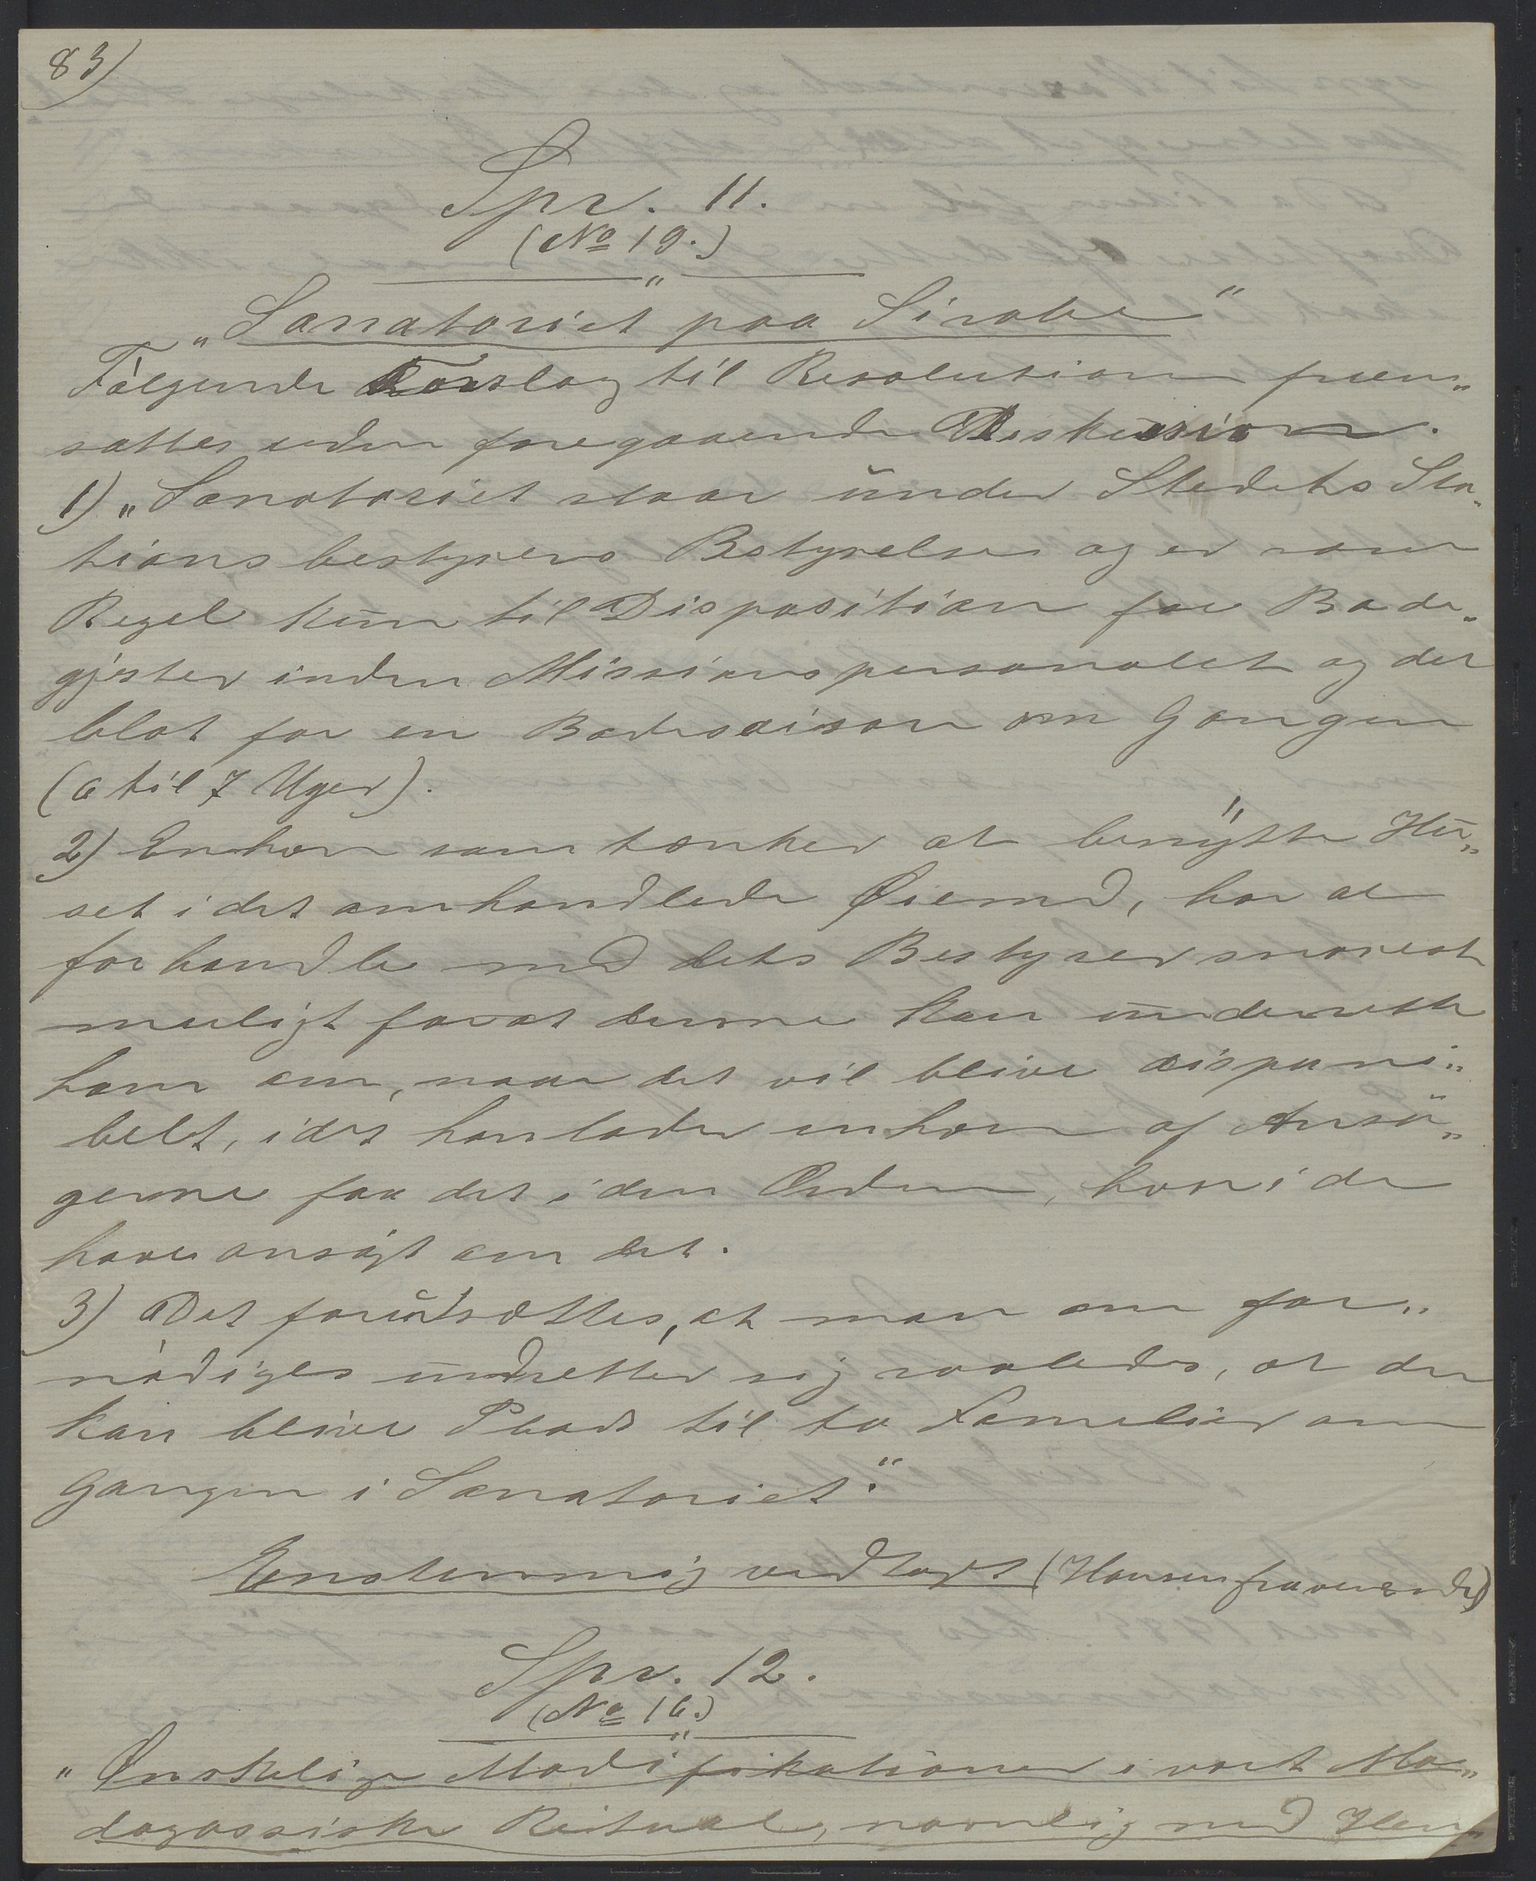 83)
Spr. 11.
(No 19.)
"
„Sanatoriet paa Sirabe"
Følgende Forslag til Resolution frem„
sattes uden foregaaende Diskusion.
1) „Sanatoriet staar under Stedets Sta„
tionsbestyrers Bstyrelse og er som
Regel kun til Disposition for Bade„
gjester inden Missionspersonalet og det
blot for en Badesaison om Gangen
(6 til 7 Uger).
2) Enhver som tænker at benytte Hu„
set i det omhandlede Øiemed, har at
forhandle med dets Bestyrer snarest
muligt forat denne kan underrette
ham om, naar det vil blive disponi„
belt, idet han lader enhver af Ansø„
gerne faa det i den Orden, hvori de
have ansøgt om det.
3) Det forudsættes, at man om for„
nødiges indretter sig saaledes, at der
kan blive Plads til to Familier om
Gangen i Sanatoriet."
Enstemmig vedtaget (Hansen fraværende)
Spr. 12.
(No 16.)
"
„Ønskelige Modifikationer i vort Ma„
dagassiske Ritual, navnlig med Hen„